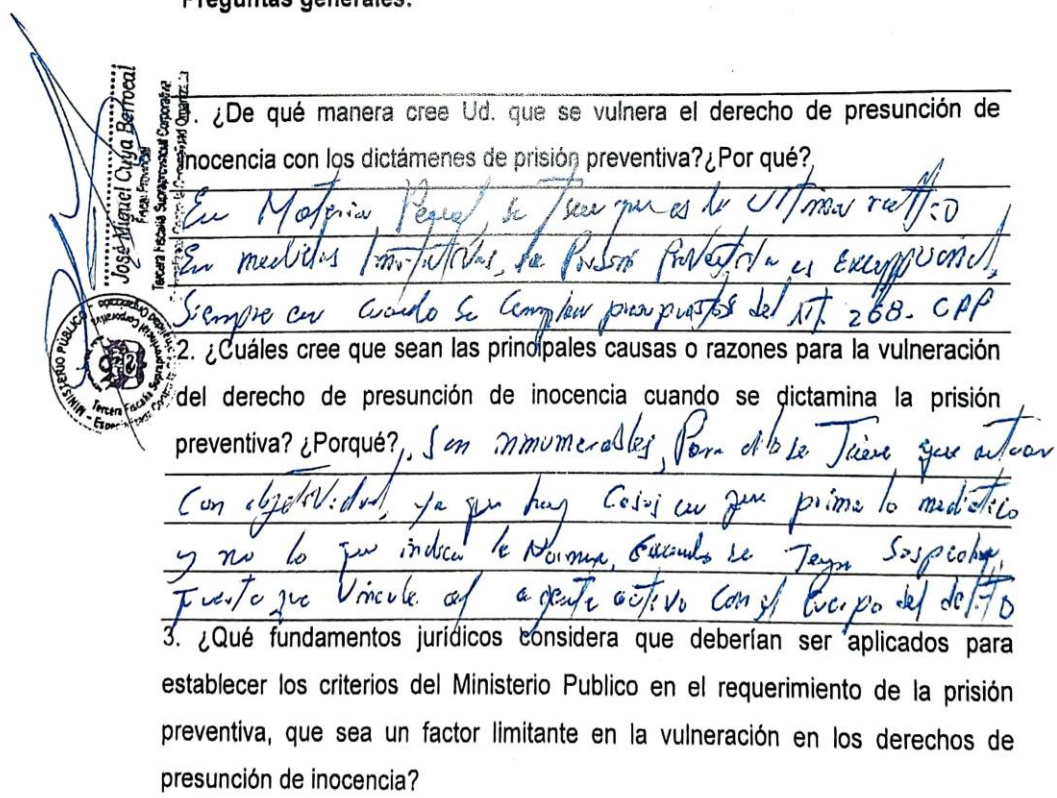 Preguntas generales:
José Miguel Cuya Berrocal
Fiscal Provincial
Tercera Fiscalía Supraprovincial Corporativa
1. ¿De qué manera cree Ud. que se vulnera el derecho de presunción de
inocencia con los dictámenes de prisión preventiva?¿Por qué?
En Materia Penal, se Tiene que es la Ultima
En medidas la Prisión Preventiva es
Siempre cuando se Cumplen presupuestos del 268. CPP
MINISTERIO PÚBLICO
Tercera Fiscalía
2. ¿Cuáles cree que sean las principales causas o razones para la vulneración
del derecho de presunción de inocencia cuando se dictamina la prisión
preventiva? ¿Porqué? Son innumerables, Para ello se Tiene que actuar
Con objetividad, ya que hay Casos en que prima lo mediático
y no lo que indica la Norma, cuando se Tenga Sospecha
Fuerte que Vincule al agente activo Con el Cuerpo del delito
3. ¿Qué fundamentos jurídicos considera que deberían ser aplicados para
establecer los criterios del Ministerio Publico en el requerimiento de la prisión
preventiva, que sea un factor limitante en la vulneración en los derechos de
presunción de inocencia?